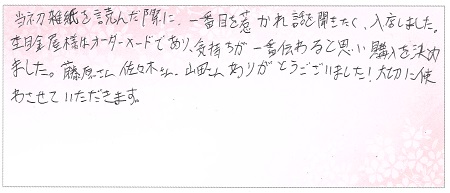 当初雑紙を読んだ際に、一番目を惹かれ話を聞きたく、入店しました。
杢目金屋様はオーダーメードであり、気持ちが一番伝わると思い購入を決め
ました。藤原さん 佐々木さん 山田さんありがとうございました！大切に使
わさせていただきます。